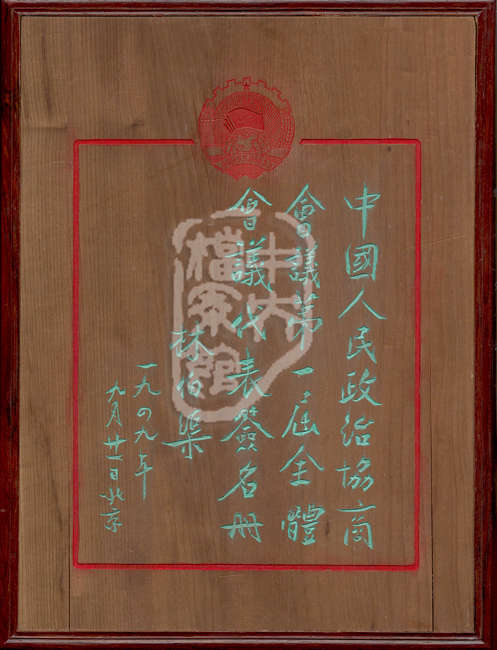 中國人民政治協商
會議第一屆全體
會議代表簽名冊
林伯渠
一九四九年
九月廿一日北京
中央
檔案館